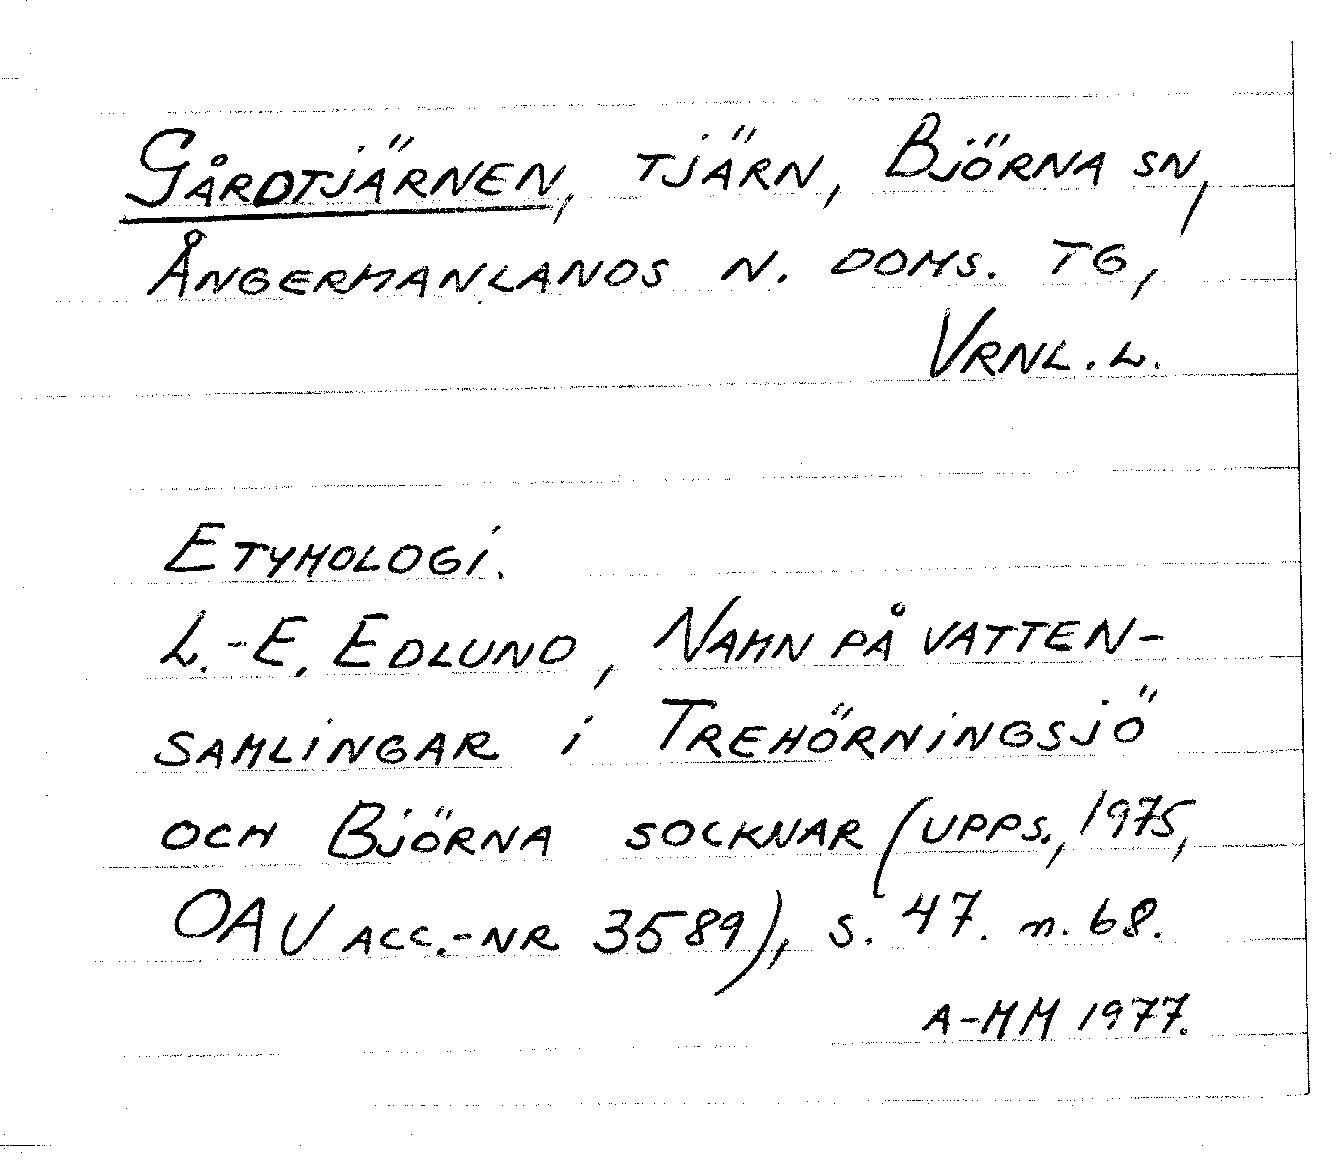 Gårdtjärnen, tjärn, Björna sn,
Ångermanlands n. doms. tg,
Vrnl. l.
Etymologi.
L.-E. Edlund, Namn på vatten-
samlingar i Trehörningsjö
och Björna socknar (upps., 1975,
OAU acc.-nr 3589), s. 47. n. 68.
A-MM 1977.